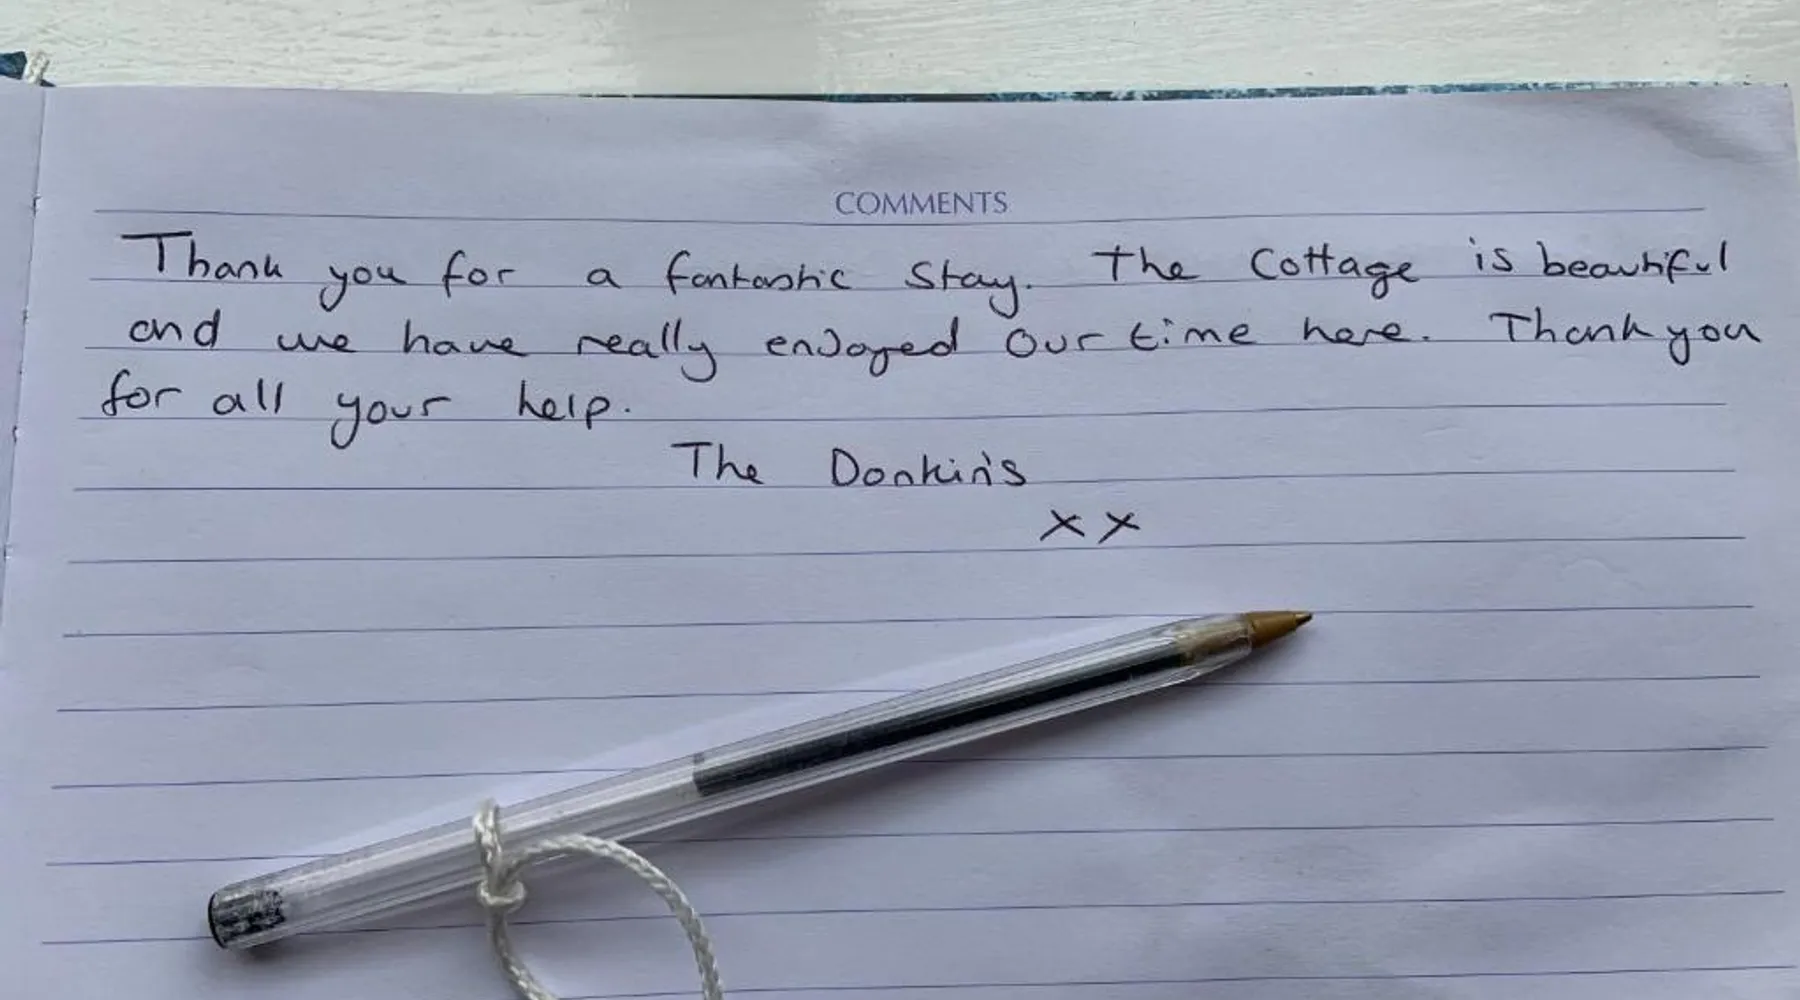 COMMENTS
Thank you for a fantastic stay. The Cottage is beautiful
and we have really enjoyed our time here. Thank you
for all your help.
The Donkin's
xx